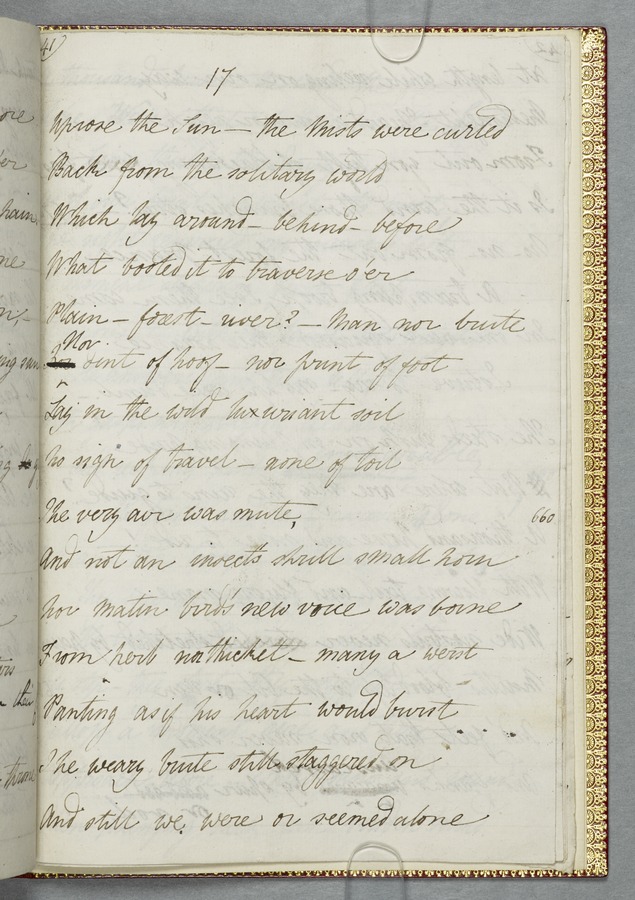 41
17
Uprose the Sun — the Mists were curled
Back from the solitary world
Which lay around — behind — before
What booted it to traverse o'er
Plain — forest — river? — Man nor brute
Nor
dint of hoof — nor print of foot
Lay in the wild luxuriant soil
No sign of travel — none of toil
The very air was mute,
660
And not an insect's shrill small horn
Nor matin bird's new voice was borne
From herb nor thicket — many a werst
Panting as if his heart would burst
The weary brute still staggered on
And still we were or seemed alone